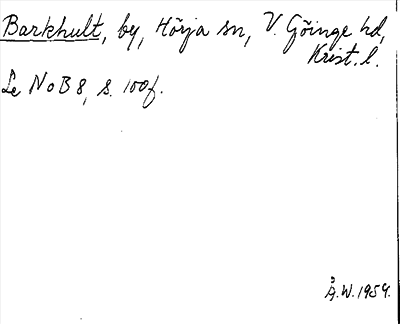 Barkhult, by, Hörja sn, V. Göinge hd,
Krist. l.
Se NoB 8, s. 100f.
Å.W. 1959.